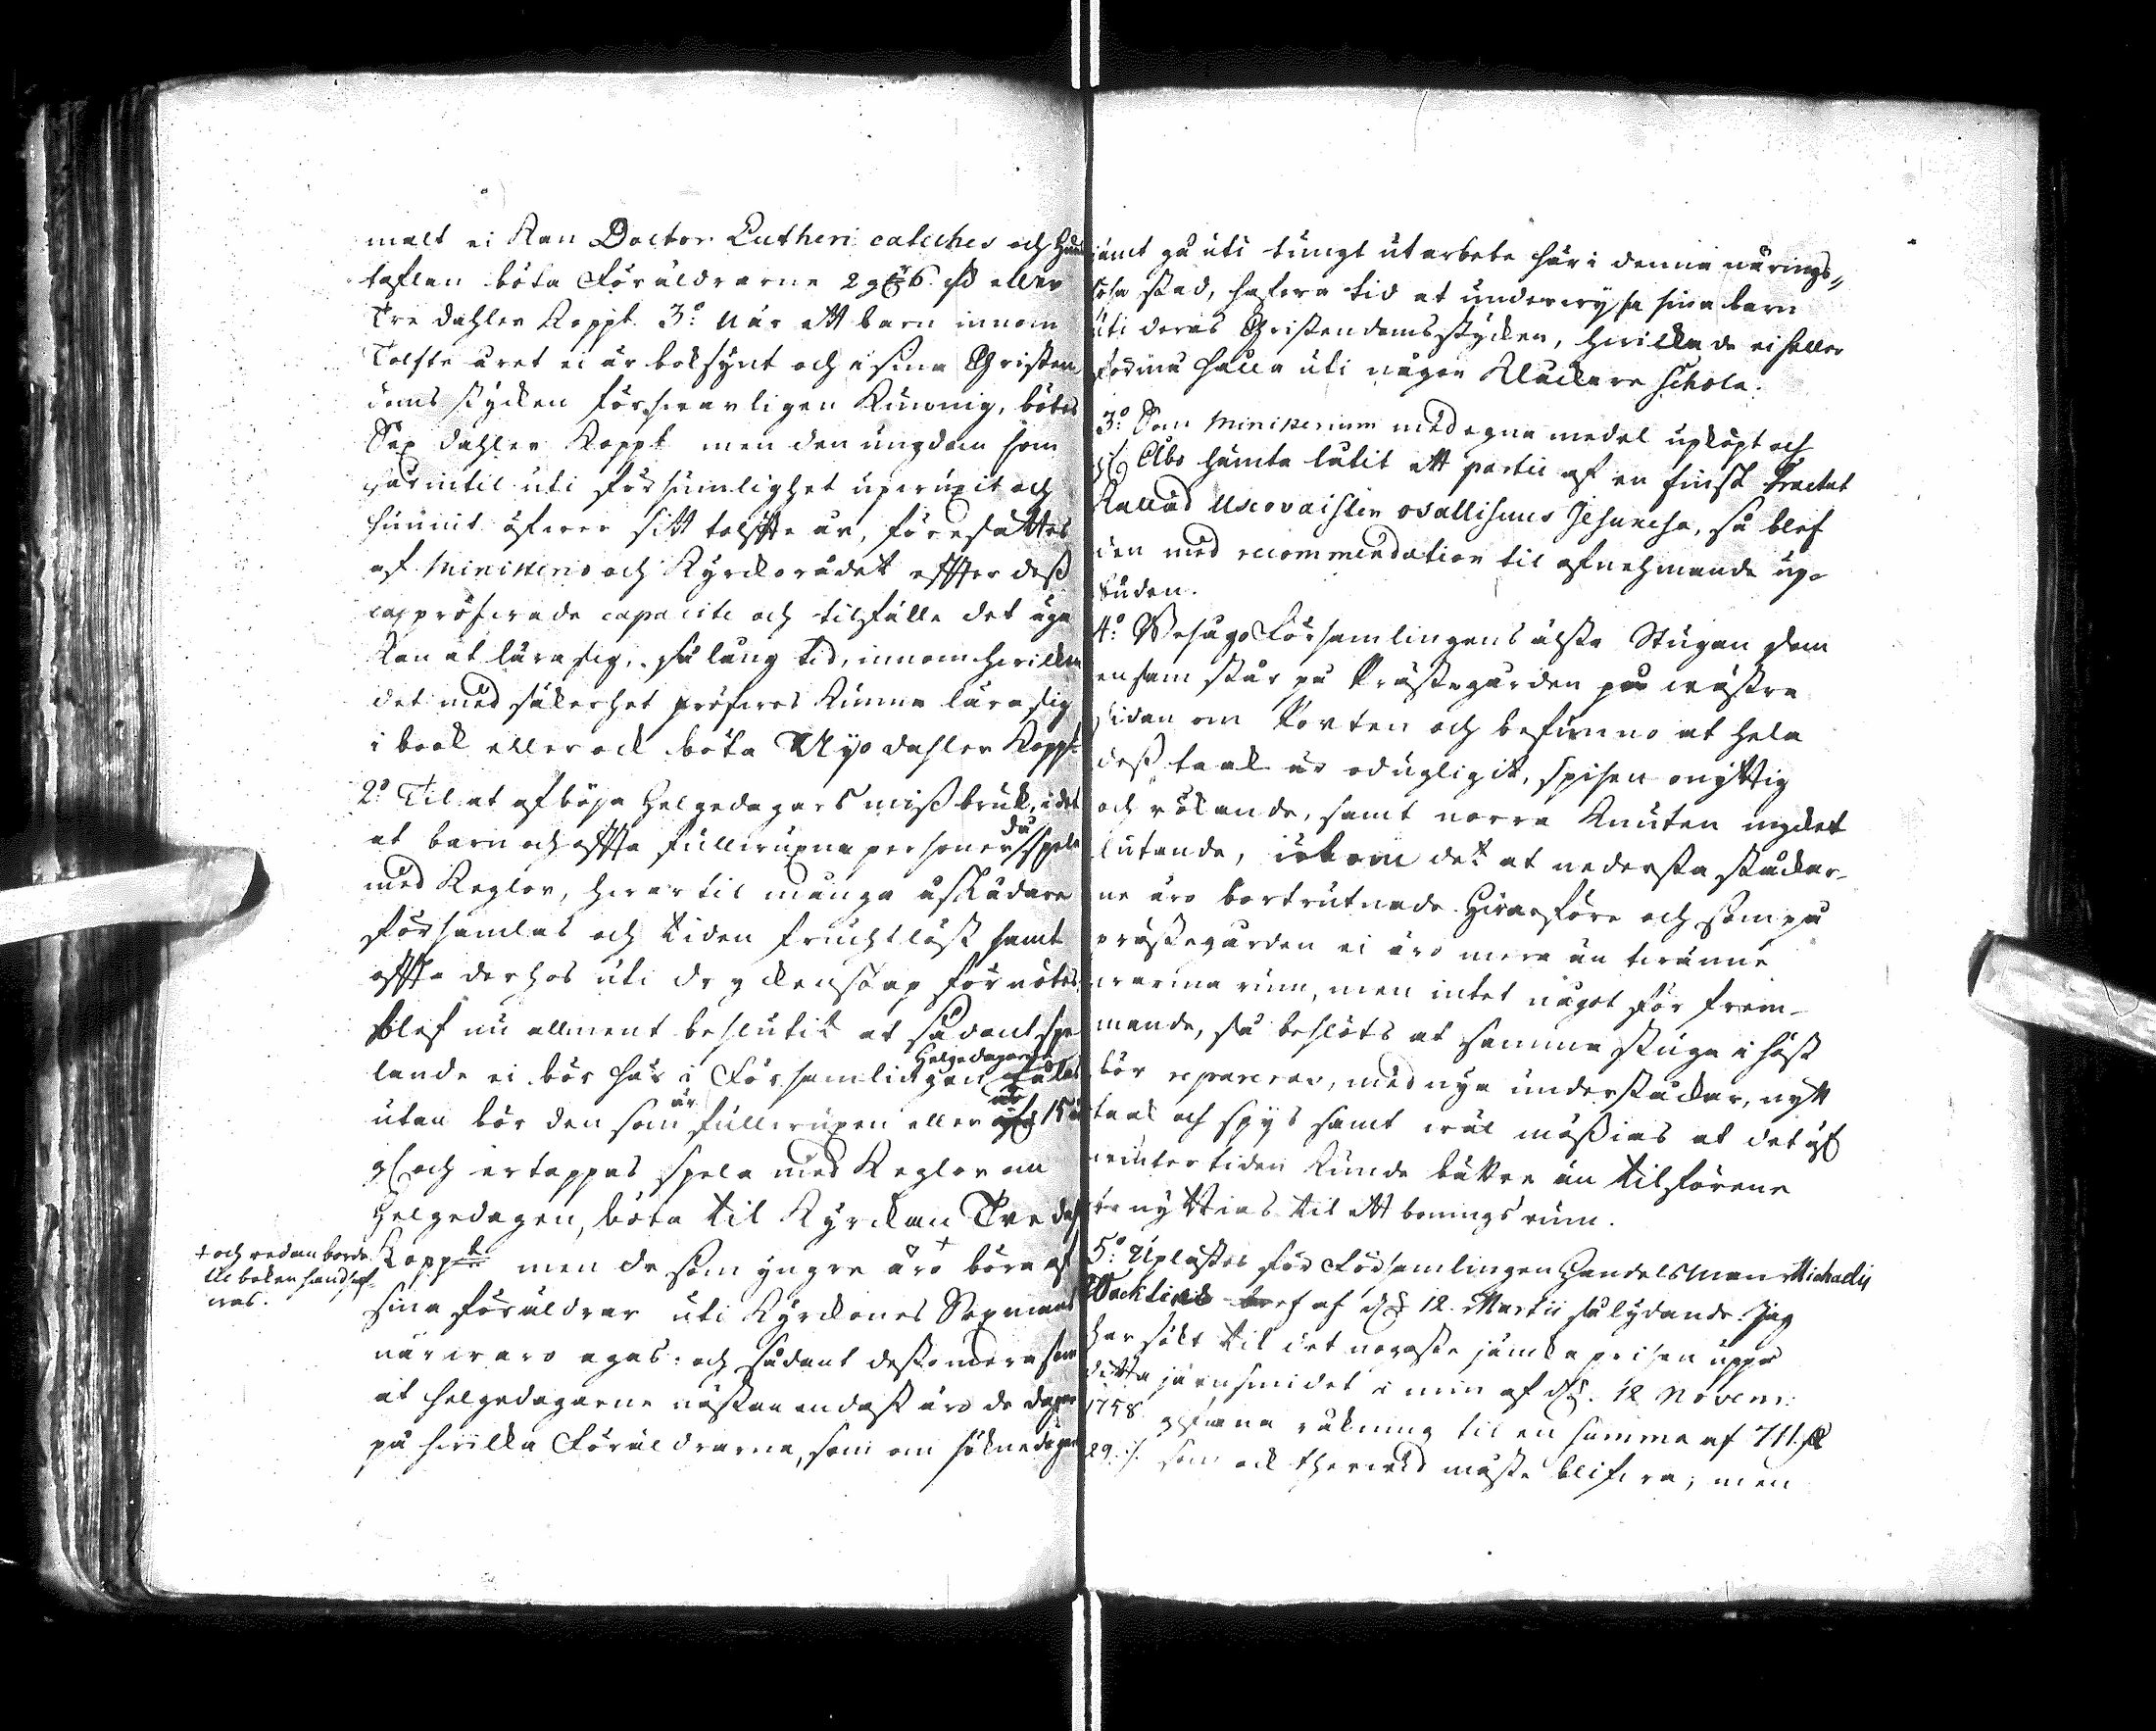 malt ei kan Doctor Lutheri cateches och Hus
taflan böta Föräldrarne 2 ggr 6 sd eller
Tre dahler Koppt. 3:o När ett barn innom
Tolfte året ei är boksynt och i sina Christen
doms stycken försvarligen kunnig, bötes
Sex dahler Koppt men den ungdom som
härintil uti försumlighet upvuxit och
hunnit öfver sitt tolffte år, föresättes
af Ministerio och Kyrckorådet effter dess
pröfvade capacite och tilfälle det äga
kan at lära sig, så lång tid, innom hvilken
det med säkerhet pröfves kunna lära sig
i book eller ock böta Nijo dahler Koppt
2:o Til at afböja Helgedagars missbruk, i det
at barn och offta fullvuxna personer då spela
med Keglor, hvartil många åskådare
församlas och tiden fruchtlöst samt
offta derhos uti dryckenskap förnötes,
blef nu allment beslutit at sådant spe
lande ei bör här i Församlingen Helgedagarna tålas
utan bör den som är fullvuxen eller 15 år
och ertappas spela med Keglor om
Helgedagen, böta til Kyrckan Tre dahl
Koppt men de som yngre äro + böra af
+ och redan borde
til boken handhaf-
vas.
sina föräldrar uti Kyrckones Sexmäns
närvaro agas: och sådant desto mera som
at helgedagarne nästan endast äro de dagar
på hvilka Föräldrarna, som om söknedagar
jämt gå uti tungt utarbete här i denna närings-
lösa stad, hafva tid at undervysa sina barn
uti deras Christendomsstycken, hvilka de ei heller
förmå hålla uti någon Klåckare schola.
3:o Som Ministerium med egna medel upköpt och
Åbo hämta låtit ett partie af en finsk Tractat
Kallad Uscovaisten osallisuus Jesuxesa, så blef
den med recommendation til afnehmande up-
buden.
4:o Besågs Församlingens älsta Stugan som
ensam står på Prästegården på västra
sidan om Porten och befinnes at hela
dess taak är odugligit, spisen onyttig
och rökande, samt norra Knuten mycket
lutande, utom det at nedersta stockar-
ne äro bortrutnade. Hvarföre och som på
prästegården ei äro mera än tvänne
varma rum, men intet något för frem-
mande, så beslöts at samma stuga i höst
bör reparerar, med nya understockar, nytt
taak och spys samt väl måssias at det
vintertiden kunde bättre än tilförene
nyttias til ett bonings rum.
5:o Uplästes för Församlingen Handelsman Michaelis
Wacklins bref af d. 12. Martii så lydande. Jag
har sökt til det nogaste jämka prisen uppå
detta järnsmidet i min af d. 12 Novem:
1758 räkning til en summa af 711. d
29. som ock thervid måste blifva; men